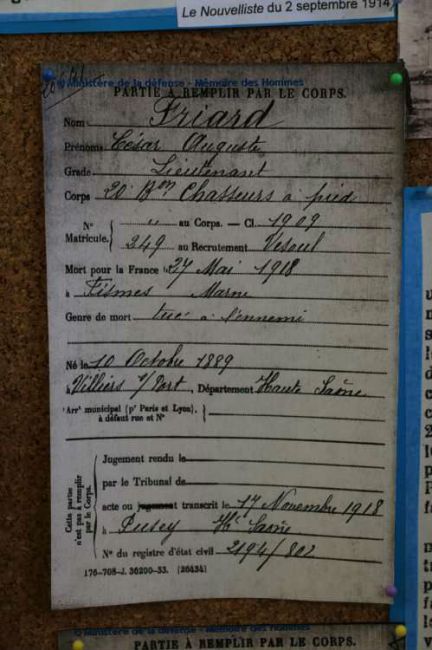 Le Nouvelliste du 2 septembre 1914
© Ministère de la défense - Mémoire des Hommes
PARTIE À REMPLIR PAR LE CORPS.
Nom Friard
Prénoms César Auguste
Grade Lieutenant
Corps 20 Bon Chasseurs à pied
N° Matricule. { " au Corps. — Cl. 1909
249 au Recrutement Vesoul
Mort pour la France le 27 Mai 1918
à Fismes Marne
Genre de mort tué à l'ennemi
Né le 10 Octobre 1889
à Villiers s/Port, Département Haute Saône
Arrt municipal (pr Paris et Lyon), à défaut rue et N° {
Cette partie n'est pas à remplir par le Corps.
Jugement rendu le
par le Tribunal de
acte ou jugement transcrit le 17 Novembre 1918
à Pusey Hte Saône
N° du registre d'état civil 2194/802
176-708-J. 36200-33. (26434)
© Ministère de la défense - Mémoire des Hommes
PARTIE À REMPLIR PAR LE CORPS.